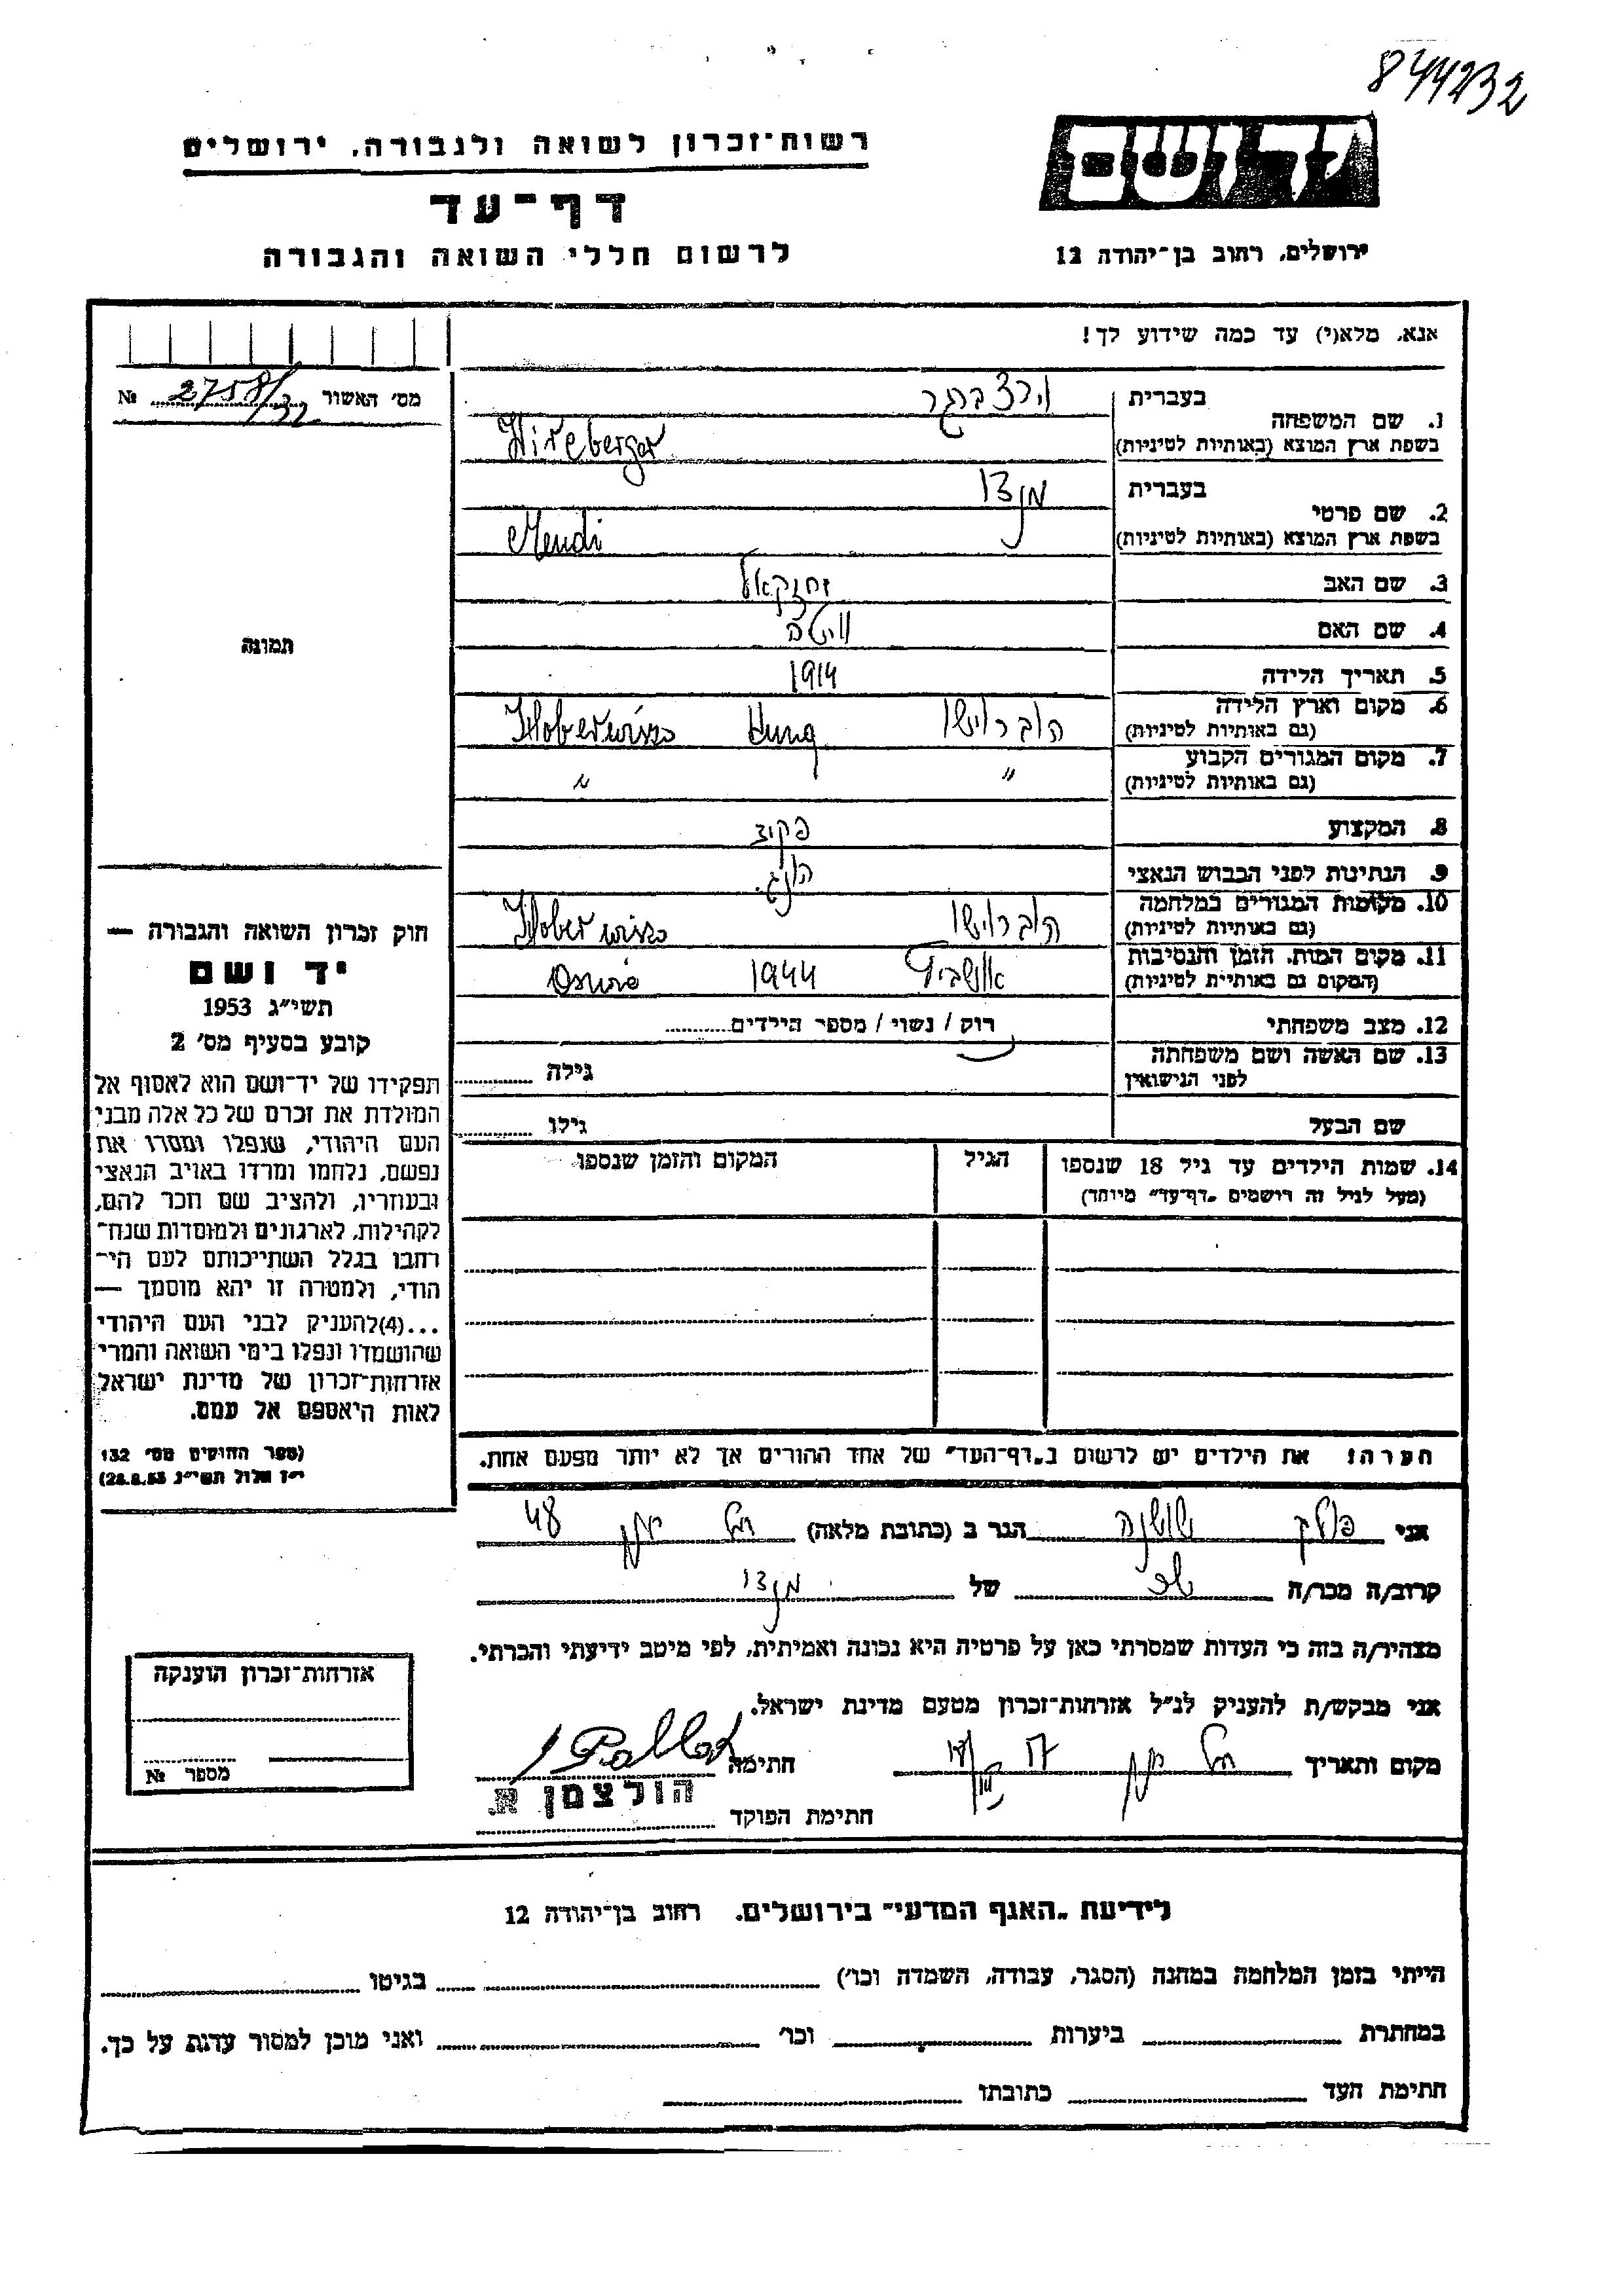 844232
רשות־זכרון לשואה ולגבורה, ירושלים
יד ושם
דף־עד
לרשום חללי השואה והגבורה
ירושלים, רחוב בן־יהודה 12
אנא, מלא(י) עד כמה שידוע לך!
מס׳ האשור 2758/32 №
1. שם המשפחה
בעברית וירצברגר
בשפת ארץ המוצא (באותיות לטיניות)
2. שם פרטי
בעברית מנדי
בשפת ארץ המוצא (באותיות לטיניות) Mendi
3. שם האב יחזקאל
4. שם האם
5. תאריך הלידה 1914
6. מקום וארץ הלידה
(גם באותיות לטיניות) Hung
7. מקום המגורים הקבוע
(גם באותיות לטיניות) " "
8. המקצוע פקיד
9. הנתינות לפני הכבוש הנאצי הונג.
10. מקומות המגורים במלחמה
(גם באותיות לטיניות)
11. מקום המות, הזמן והנסיבות
(המקום גם באותיות לטיניות) 1944
12. מצב משפחתי רוק / נשוי / מספר הילדים
13. שם האשה ושם משפחתה
לפני הנישואין גילה
שם הבעל גילו
14. שמות הילדים עד גיל 18 שנספו הגיל המקום והזמן שנספו
(מעל לגיל זה רישמים „דף־עד״ מיוחד)
תמונה
חוק זכרון השואה והגבורה —
יד ושם
תשי״ג 1953
קובע בסעיף מס׳ 2
תפקידו של יד־ושם הוא לאסוף אל
המולדת את זכרם של כל אלה מבני
העם היהודי, שנפלו ומסרו את
נפשם, נלחמו ומרדו באויב הנאצי
ובעוזריו, ולהציב שם וזכר להם,
לקהילות, לארגונים ולמוסדות שנח־
רבו בגלל השתייכותם לעם הי־
הודי, ולמטרה זו יהא מוסמך —
...(4)להעניק לבני העם היהודי
שהושמדו ונפלו בימי השואה והמרי
אזרחות־זכרון של מדינת ישראל
לאות היאספם אל עמם.
(ספר החוקים מס׳ 132
י״ז אלול תשי״ג 28.8.53)
הערה! את הילדים יש לרשום ב„דף־העד״ של אחד ההורים אך לא יותר מפעם אחת.
אני שושנה הגר ב (כתובת מלאה) 48
קרוב/ה מכר/ה של מנדי
מצהיר/ה בזה כי העדות שמסרתי כאן על פרטיה היא נכונה ואמיתית, לפי מיטב ידיעתי והכרתי.
אני מבקש/ת להעניק לנ״ל אזרחות־זכרון מטעם מדינת ישראל.
מקום ותאריך חתימה
חתימת הפוקד הולצמן א.
אזרחות־זכרון הוענקה
מספר №
לידיעת „האגף המדעי״ בירושלים, רחוב בן־יהודה 12
הייתי בזמן המלחמה במחנה (הסגר, עבודה, השמדה וכו׳) בגיטו
במחתרת ביערות וכו׳ ואני מוכן למסור עדות על כך.
חתימת העד כתובתו